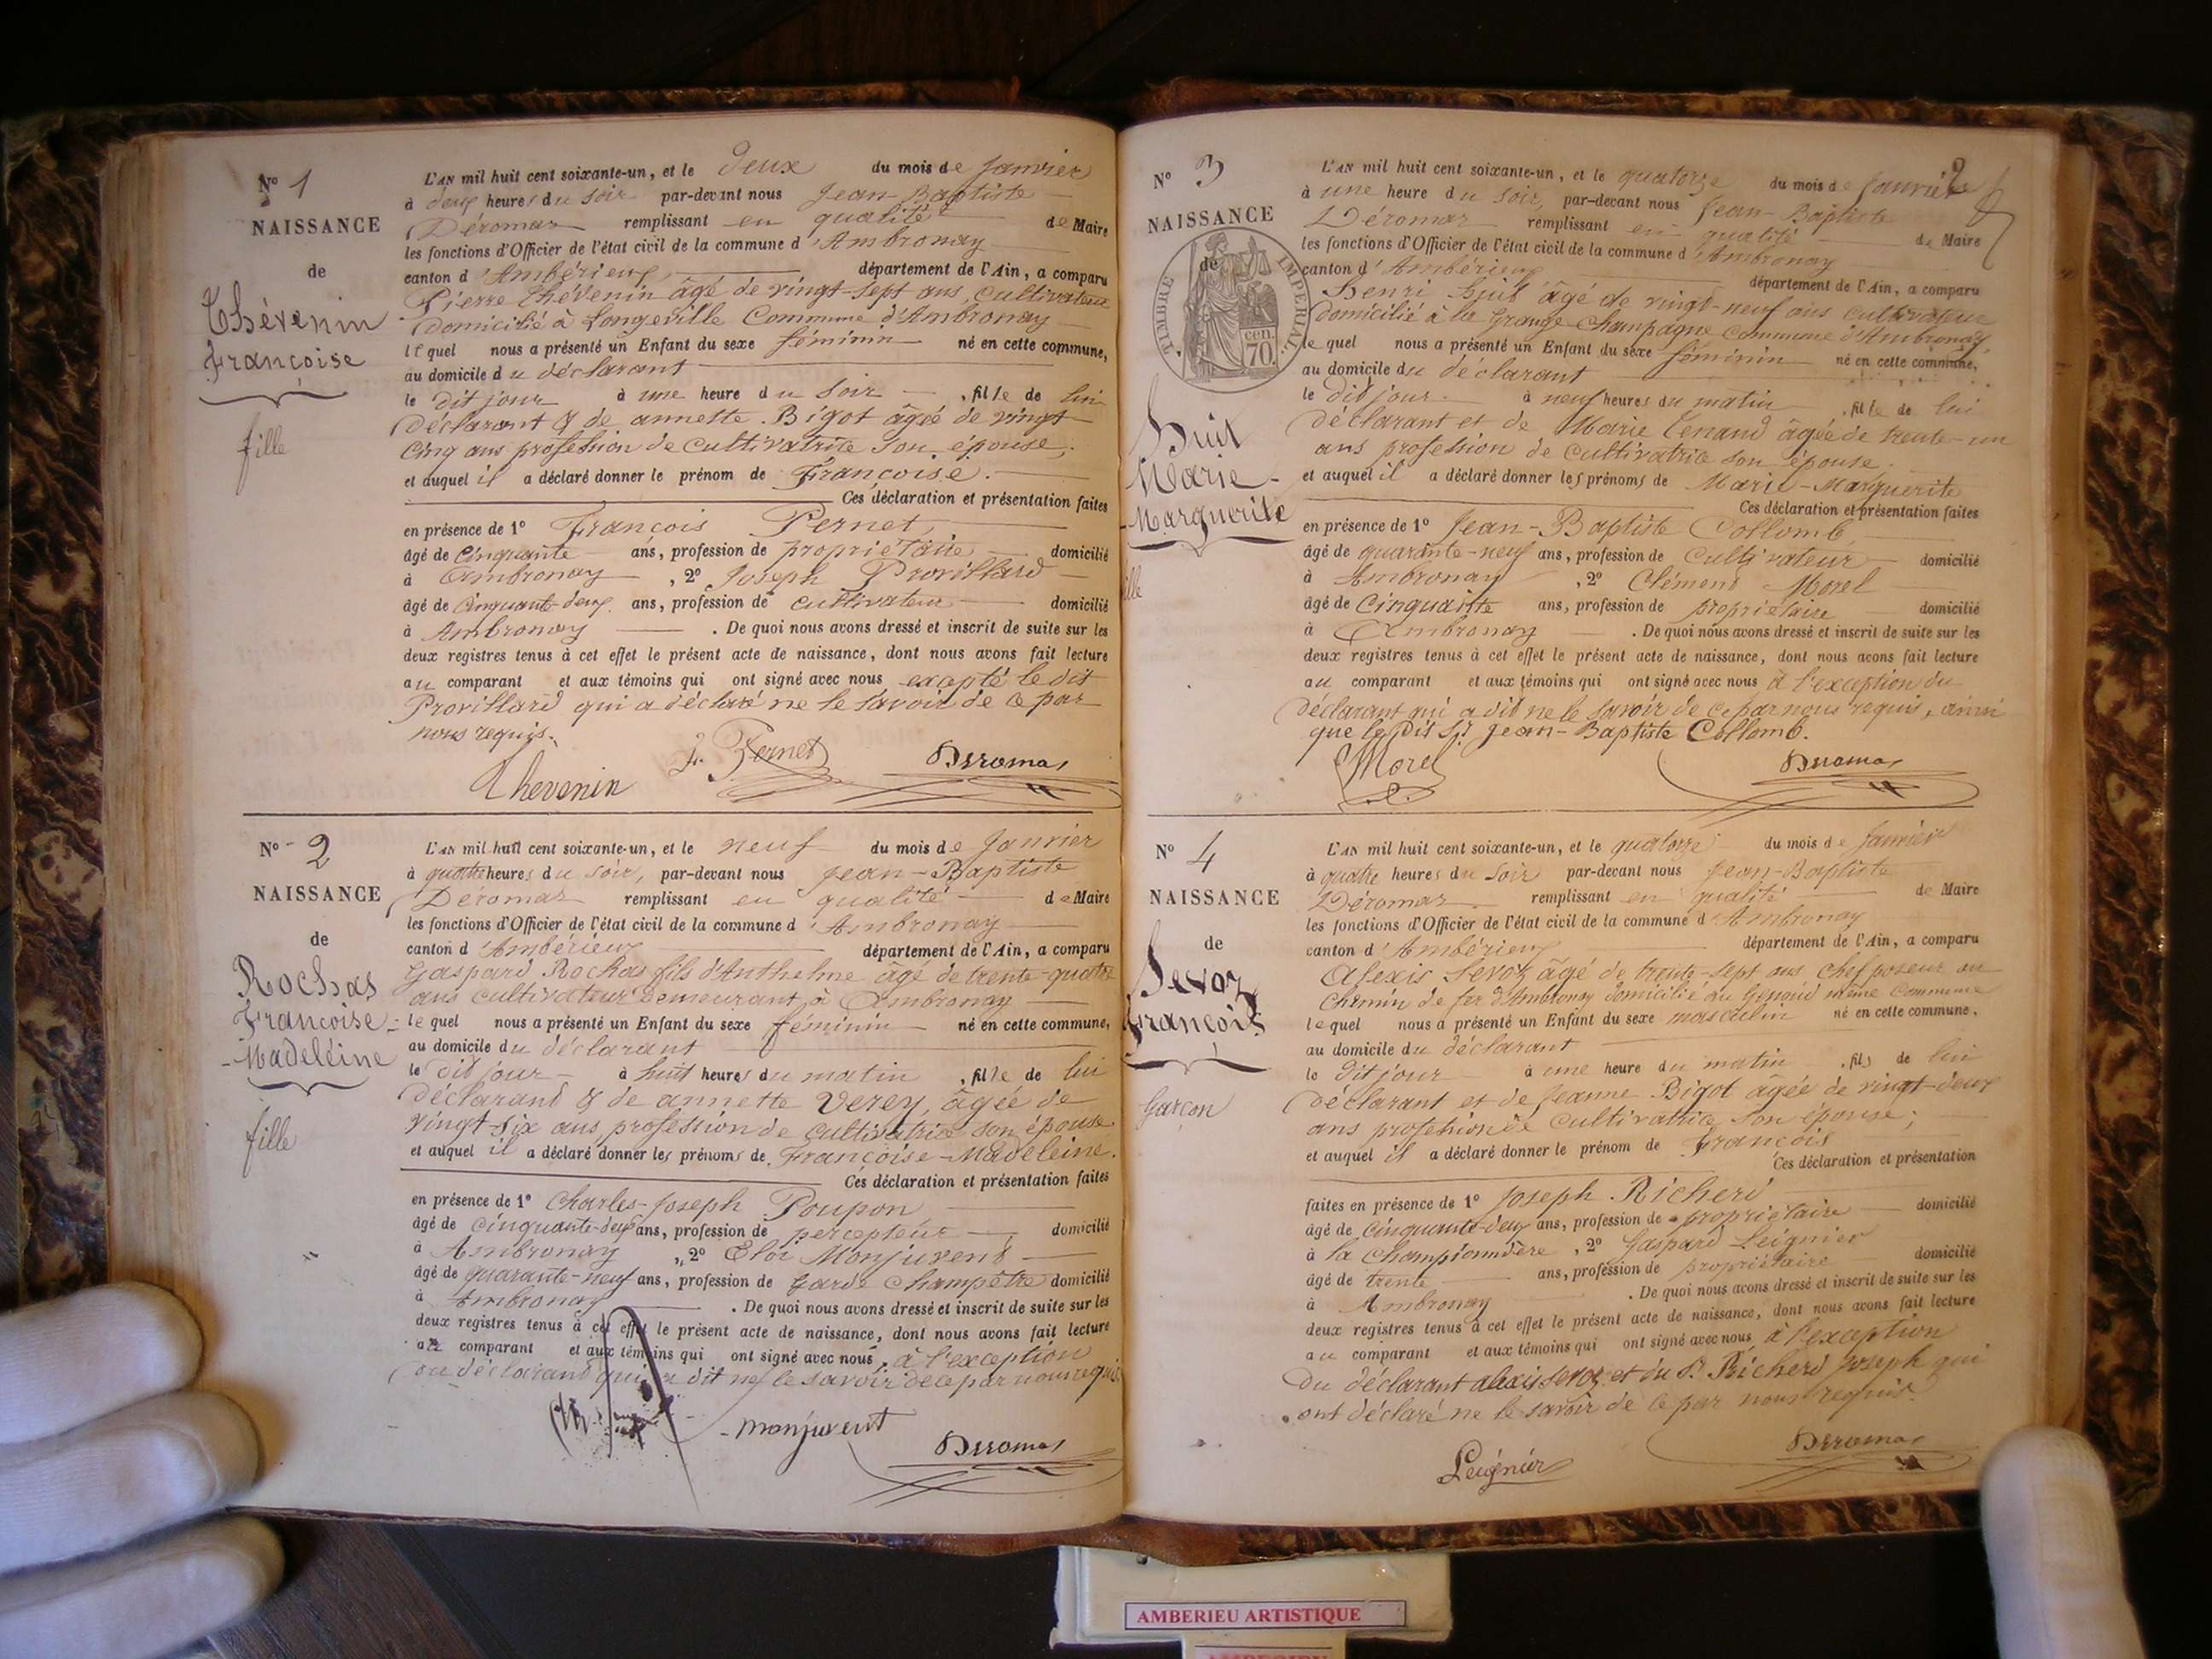 N° 1
NAISSANCE
de
Thévenin
Françoise
fille
L'AN mil huit cent soixante-un, et le Deux du mois de Janvier
à deux heures du soir par-devant nous Jean-Baptiste
Déromas remplissant en qualité de Maire
les fonctions d'Officier de l'état civil de la commune d'Ambronay
canton d'Ambérieux département de l'Ain, a comparu
Pierre Thévenin âgé de vingt-sept ans, cultivateur
domicilié à Longeville Commune d'Ambronay
lequel nous a présenté un Enfant du sexe féminin né en cette commune,
au domicile du déclarant
le dit jour à une heure du soir, fille de lui
déclarant & de annette Bigot âgée de vingt
cinq ans profession de cultivatrice son épouse,
et auquel il a déclaré donner le prénom de Françoise.
Ces déclaration et présentation faites
en présence de 1° François Pernet
âgé de Cinquante ans, profession de propriétaire domicilié
à Ambronay, 2° Joseph Provillard
âgé de Cinquante-deux ans, profession de cultivateur domicilié
à Ambronay. De quoi nous avons dressé et inscrit de suite sur les
deux registres tenus à cet effet le présent acte de naissance, dont nous avons fait lecture
au comparant et aux témoins qui ont signé avec nous excepté le dit
Provillard qui a déclaré ne le savoir de ce par
nous requis.
Thevenin J. Pernet Deromas
N° 2
NAISSANCE
de
Rochas
Francoise-
-Madeléine
fille
L'AN mil huit cent soixante-un, et le neuf du mois de Janvier
à quatre heures du soir, par-devant nous Jean-Baptiste
Déromas remplissant en qualité de Maire
les fonctions d'Officier de l'état civil de la commune d'Ambronay
canton d'Ambérieux département de l'Ain, a comparu
Gaspard Rochas fils d'Anthelme âgé de trente-quatre
ans cultivateur demeurant à Ambronay
lequel nous a présenté un Enfant du sexe féminin né en cette commune,
au domicile du déclarant
le dit jour à huit heures du matin, fille de lui
déclarant & de annette Verey, âgée de
vingt six ans, profession de cultivatrice son épouse
et auquel il a déclaré donner les prénoms de Françoise-Madeleine.
Ces déclaration et présentation faites
en présence de 1° Charles-Joseph Poupon
âgé de cinquante-deux ans, profession de percepteur domicilié
à Ambronay, 2° Eloi Monjuvent
âgé de quarante-neuf ans, profession de garde champêtre domicilié
à Ambronay. De quoi nous avons dressé et inscrit de suite sur les
deux registres tenus à cet effet le présent acte de naissance, dont nous avons fait lecture
au comparant et aux témoins qui ont signé avec nous, à l'exception
du déclarant qui a dit ne le savoir de ce par nous requis
monjuvent Deromas
N° 3
NAISSANCE
de
TIMBRE IMPERIAL
cen.
70.
Huit
Marie-
-Marguerite
ille
2
L'AN mil huit cent soixante-un, et le quatorze du mois de Janvier
à une heure du soir, par-devant nous Jean-Baptiste
Déromas remplissant en qualité de Maire
les fonctions d'Officier de l'état civil de la commune d'Ambronay
canton d'Ambérieux département de l'Ain, a comparu
Henri Huit âgé de vingt-neuf ans cultivateur
domicilié à la Grange Champagne commune d'Ambronay,
lequel nous a présenté un Enfant du sexe féminin né en cette commune,
au domicile du déclarant
le dit jour à neuf heures du matin, fille de lui
déclarant et de Marie Tenand âgée de trente-un
ans profession de cultivatrice son épouse,
et auquel il a déclaré donner les prénoms de Marie-Marguerite
Ces déclaration et présentation faites
en présence de 1° Jean-Baptiste Collomb
âgé de quarante-neuf ans, profession de cultivateur domicilié
à Ambronay, 2° Clémend Morel
âgé de Cinquante ans, profession de propriétaire domicilié
à Ambronay. De quoi nous avons dressé et inscrit de suite sur les
deux registres tenus à cet effet le présent acte de naissance, dont nous avons fait lecture
au comparant et aux témoins qui ont signé avec nous à l'exception du
déclarant qui a dit ne le savoir de ce par nous requis, ainsi
que le dit Sr Jean-Baptiste Collomb.
Morel Deromas
N° 4
NAISSANCE
de
Sevoz
François
Garçon
L'AN mil huit cent soixante-un, et le quatorze du mois de Janvier
à quatre heures du soir par-devant nous Jean-Baptiste
Déromas remplissant en qualité de Maire
les fonctions d'Officier de l'état civil de la commune d'Ambronay
canton d'Ambérieux département de l'Ain, a comparu
Alexis Sevoz âgé de trente-sept ans chef poseur au
Chemin de fer d'Ambronay domicilié au Genoud même Commune
lequel nous a présenté un Enfant du sexe masculin né en cette commune,
au domicile du déclarant
le dit jour à une heure du matin, fils de lui
déclarant et de Jeanne Bigot âgée de vingt-deux
ans profession de cultivatrice son épouse;
et auquel il a déclaré donner le prénom de François
Ces déclaration et présentation
faites en présence de 1° Joseph Richerd
âgé de cinquante-deux ans, profession de propriétaire domicilié
à la Championnière, 2° Gaspard Leignier
âgé de trente ans, profession de propriétaire domicilié
à Ambronay. De quoi nous avons dressé et inscrit de suite sur les
deux registres tenus à cet effet le présent acte de naissance, dont nous avons fait lecture
au comparant et aux témoins qui ont signé avec nous à l'exception
du déclarant alexis sevoz et du Sr. Richerd Joseph qui
ont déclaré ne le savoir de ce par nous requis
Leignier Deromas
AMBERIEU ARTISTIQUE